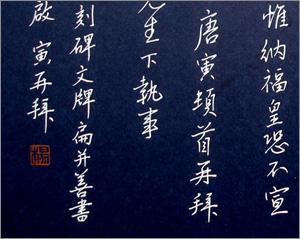 惟納福皇恐不宣
唐寅頓首再拜
先生下執事
刻碑文牌扁并善書
啟 寅再拜